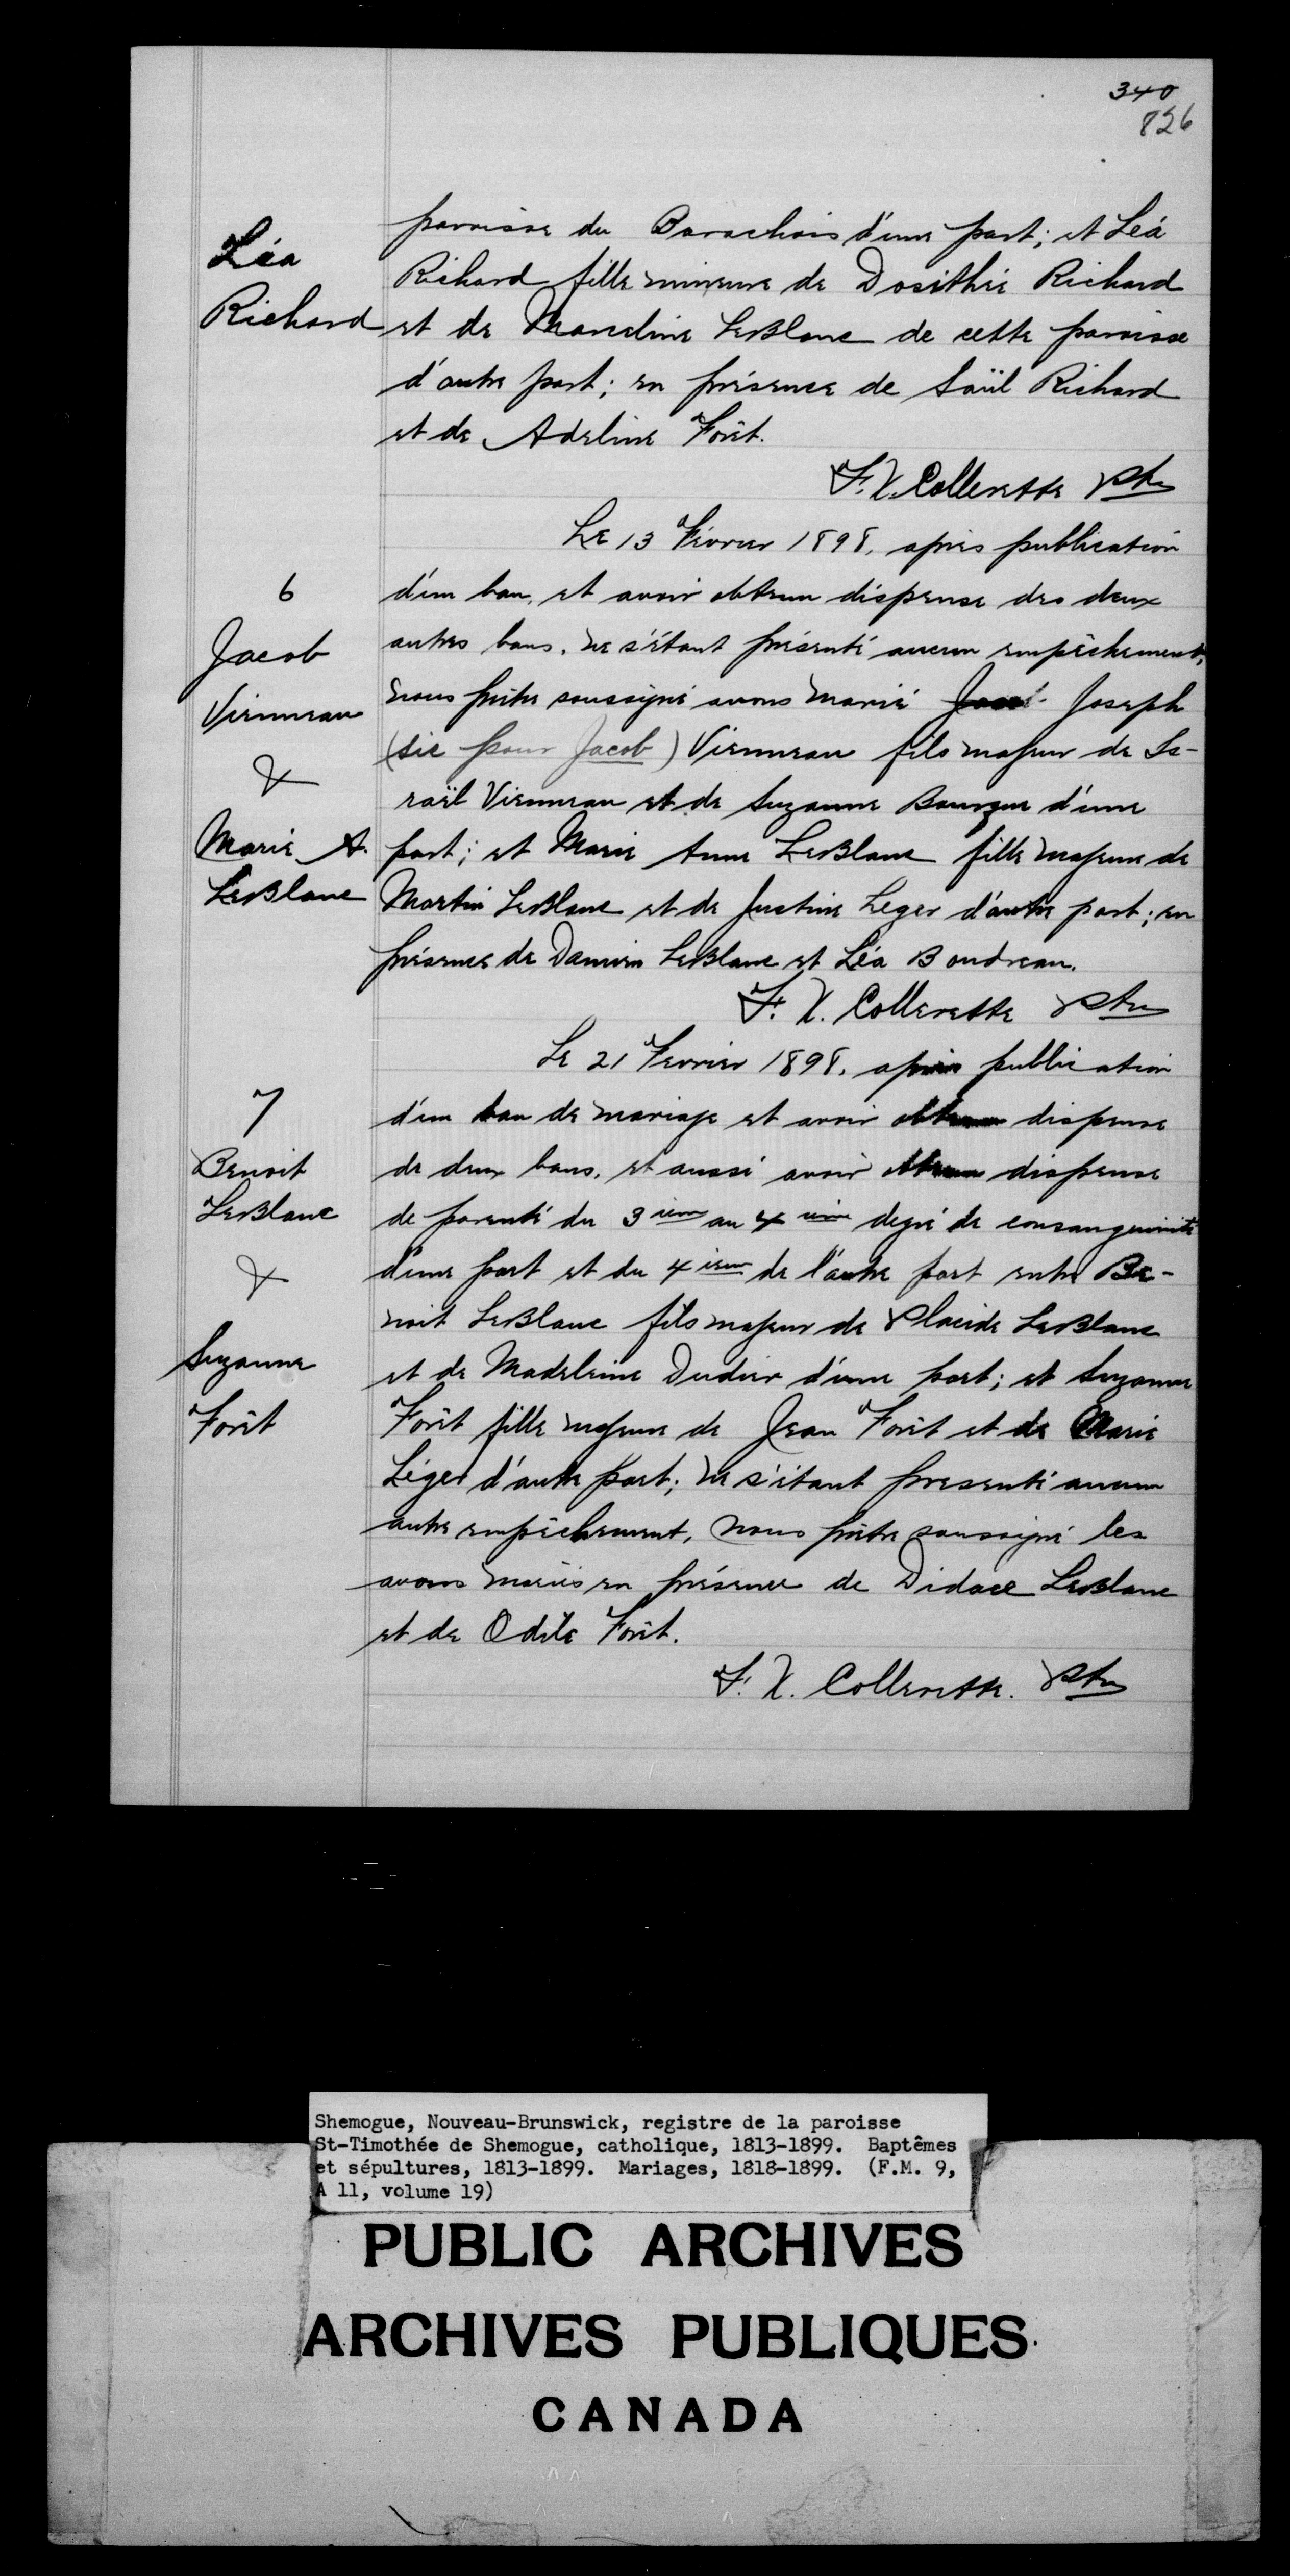 340
826
Léa
Richard
paroisse du Barachois d'une part; et Léa
Richard fille mineure de Dosithée Richard
et de Marceline LeBlanc de cette paroisse
d'autre part; en présence de Saül Richard
et de Adeline Forêt.
F. X. Collerette Ptre
6
Jacob
Vienneau
&
Marie A.
LeBlanc
Le 13 Février 1898, après publication
d'un ban, et avoir obtenu dispense des deux
autres bans, ne s'étant présenté aucun empêchement,
nous prêtre soussigné avons marié Jacob Joseph
(sic pour Jacob) Vienneau fils majeur de Is-
raël Vienneau et de Suzanne Bourque d'une
part; et Marie Anne LeBlanc fille majeure de
Martin LeBlanc et de Justine Leger d'autre part; en
présence de Damien LeBlanc et Léa Boudreau.
F. X. Collerette Ptre
7
Benoit
LeBlanc
&
Suzanne
Forêt
Le 21 Fevrier 1898, après publication
d'un ban de mariage et avoir obtenu dispense
de deux bans, et aussi avoir obtenu dispense
de parenté du 3ième au 4ième degré de consanguinité
d'une part et du 4ième de l'autre part entre Be-
noit LeBlanc fils majeur de Placide LeBlanc
et de Madeleine Dudier d'une part; et Suzanne
Forêt fille majeure de Jean Forêt et de Marie
Léger d'autre part; ne s'étant presenté aucun
autre empêchement, nous prêtre soussigné les
avons mariés en présence de Didace LeBlanc
et de Odile Forêt.
F. X. Collerette. Ptre
Shemogue, Nouveau-Brunswick, registre de la paroisse
St-Timothée de Shemogue, catholique, 1813-1899. Baptêmes
et sépultures, 1813-1899. Mariages, 1818-1899. (F.M. 9,
A 11, volume 19)
PUBLIC ARCHIVES
ARCHIVES PUBLIQUES
CANADA